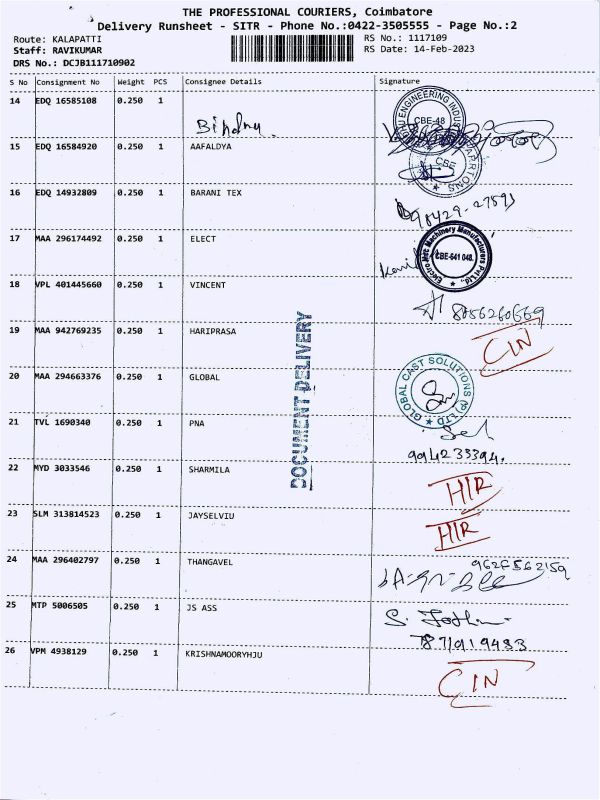 THE PROFESSIONAL COURIERS, Coimbatore
Delivery Runsheet - SITR - Phone No.:0422-3505555 - Page No.:2
Route: KALAPATTI RS No.: 1117109
Staff: RAVIKUMAR RS Date: 14-Feb-2023
DRS No.: DCJB111710902
S No Consignment No Weight PCS Consignee Details Signature
14 EDQ 16585108 0.250 1
CBE-48
15 EDQ 16584920 0.250 1 AAFALDYA
CBE
16 EDQ 14932809 0.250 1 BARANI TEX
17 MAA 296174492 0.250 1 ELECT
Electro Mec Machinery Manufacturers Pvt Ltd.
CBE-641 048.
18 VPL 401445660 0.250 1 VINCENT
8056260669
19 MAA 942769235 0.250 1 HARIPRASA
CIN
DOCUMENT DELIVERY
20 MAA 294663376 0.250 1 GLOBAL
GLOBAL CAST SOLUTIONS (P) LTD
21 TVL 1690340 0.250 1 PNA
994233394.
22 MYD 3033546 0.250 1 SHARMILA
HIR
23 SLM 313814523 0.250 1 JAYSELVIU
HIR
24 MAA 296402797 0.250 1 THANGAVEL
25 MTP 5006505 0.250 1 JS ASS
26 VPM 4938129 0.250 1 KRISHNAMOORYHJU
CIN